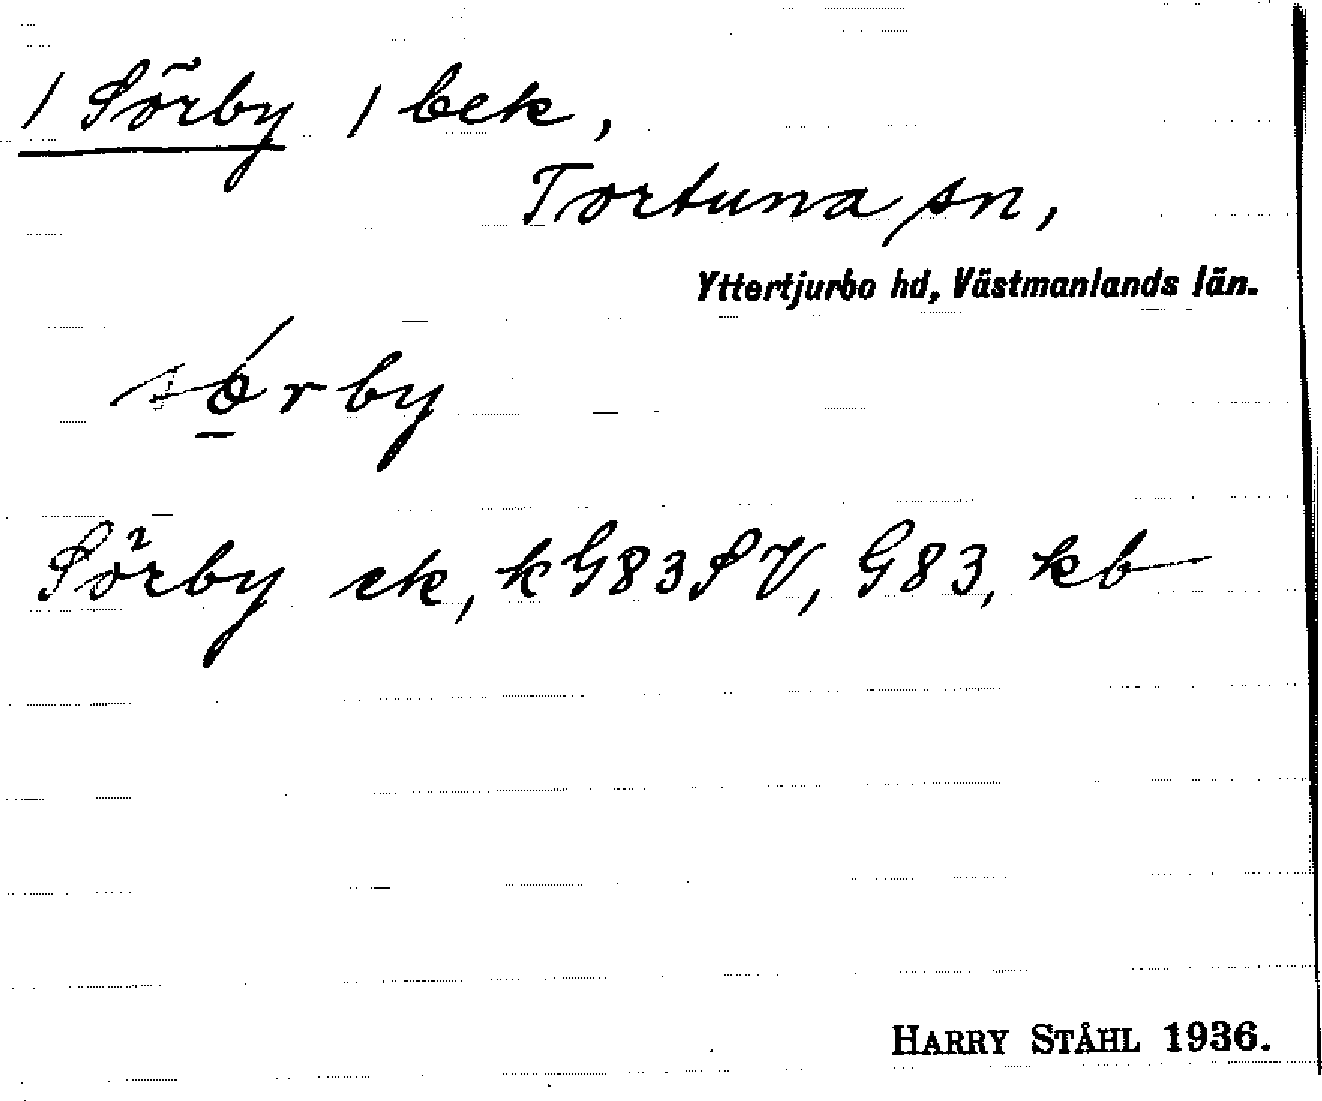 / Sörby / bek,
Tortuna sn,
Yttertjurbo hd, Västmanlands län.
sø̲rby
Sörby ek, kG83SV, G83, kb
HARRY STÅHL 1936.